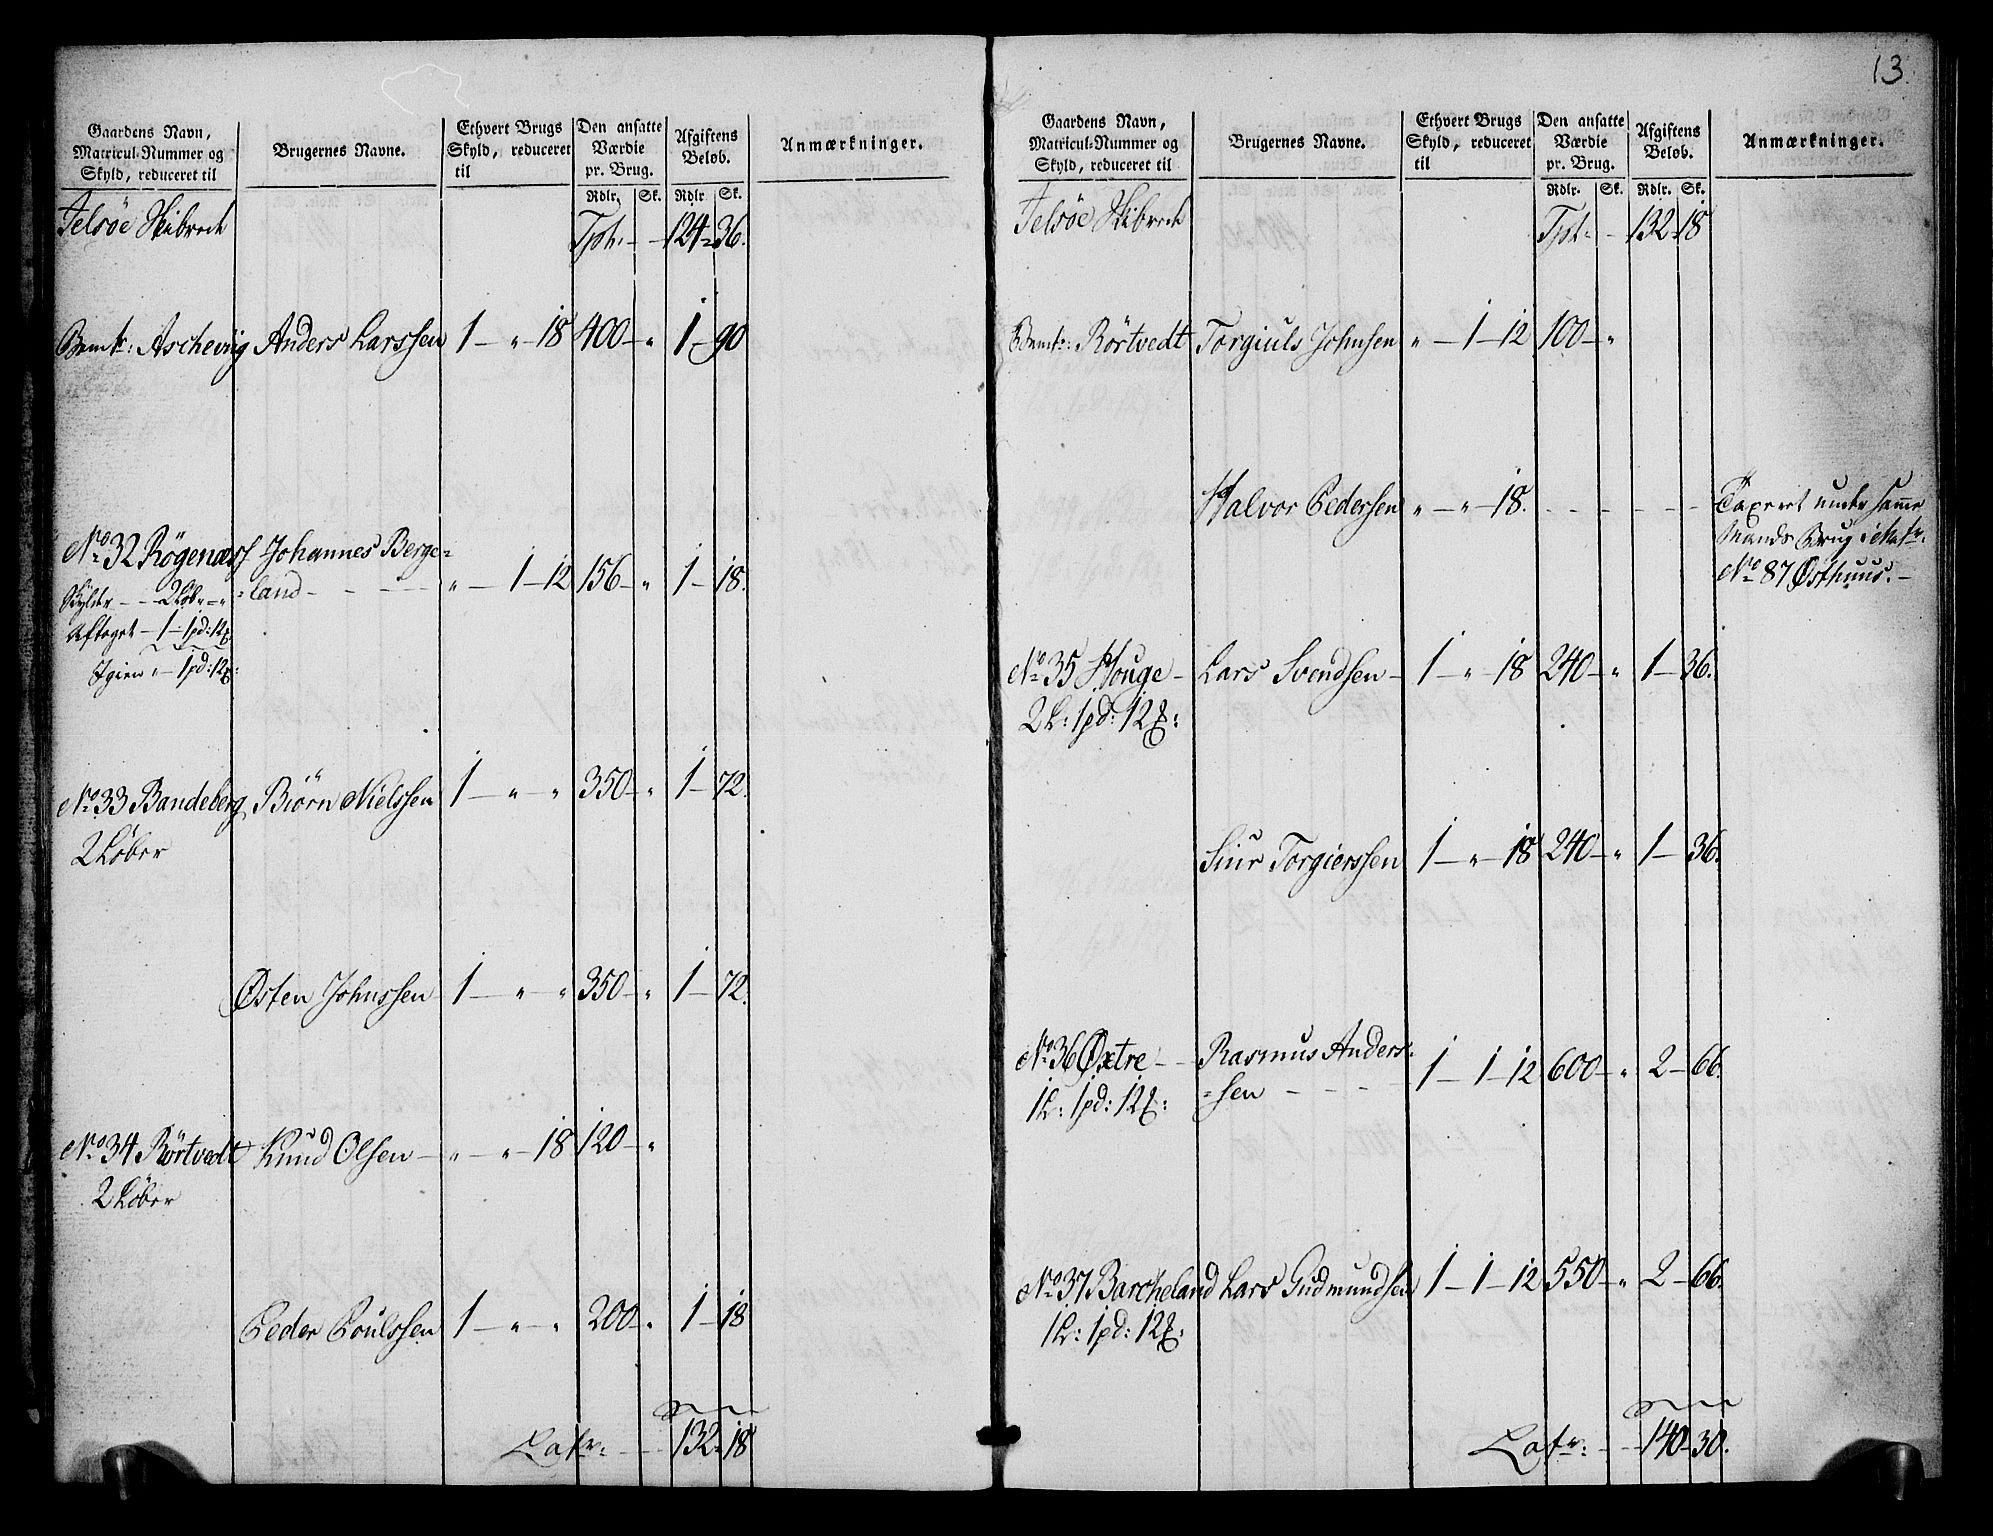 Gaardens Navn,
Matricul-Nummer og
Skyld, reduceret til
Brugernes Navne.
Ethvert Brugs
Skyld, reduceret
til
Den ansatte
Værdie
pr. Brug.
Rdlr. Sk.
Afgiftens
Beløb.
Rdlr Sk.
Anmærkninger.
Jelsøe Skibrede Tpt: - - 124 - 36.
Bemte: Aschevig Anders Larssen 1 - " - 18 400 - " 1 - 90
No 32 Røgenæs Johannes Berge=
=land - - - - " - 1 - 12 156 - " 1 - 18.
Skylder - - 2 Løb - " - "
Aftaget - 1 - 1 pd: 12 
Igien " - 1 pd: 12 
No 33 Bandeberg Biørn Nielssen 1 - " - " 350 - " 1 - 72.
2 Løber
Østen Johnssen 1 - " - " 350 - " 1 - 72.
No 34 Rørtvedt Knud Olsen - " - " - 18 120 - "
2 Løber
Peder Poulssen 1 - " - " 200 - " 1 - 18
Latr: - - 132 - 18
13.
Gaardens Navn,
Matricul-Nummer og
Skyld, reduceret til
Brugernes Navne.
Ethvert Brugs
Skyld, reduceret
til
Den ansatte
Værdie
pr. Brug.
Rdlr. Sk.
Afgiftens
Beløb.
Rdlr. Sk.
Anmærkninger.
Jelsøe Skibrede Tpt: - 132 - 18
Bemte: Rørtvedt Torgiuls Johnsen " - 1 - 12 100 - "
Halvor Pedersen " - " - 18. - - - - -
Taxeret under samme
Mands Brug i Matr:
No 87 Østhuus. -
No 35 Houge - Lars Svendsen - 1 - " - 18 240 - " 1 - 36.
2 L: 1 pd: 12 
Siur Torgierssen 1 - " - 18 240 - " 1 - 36.
No 36 Øxtre - - Rasmus Anders=
=sen - - - - 1 - 1 - 12 600 - " 2 - 66.
1 L: 1 pd: 12 
No 37 Barcheland Lars Gudmundsen 1 - 1 - 12 550 - " 2 - 66.
1 L: 1 pd: 12 
Latr: - - 140 - 30.